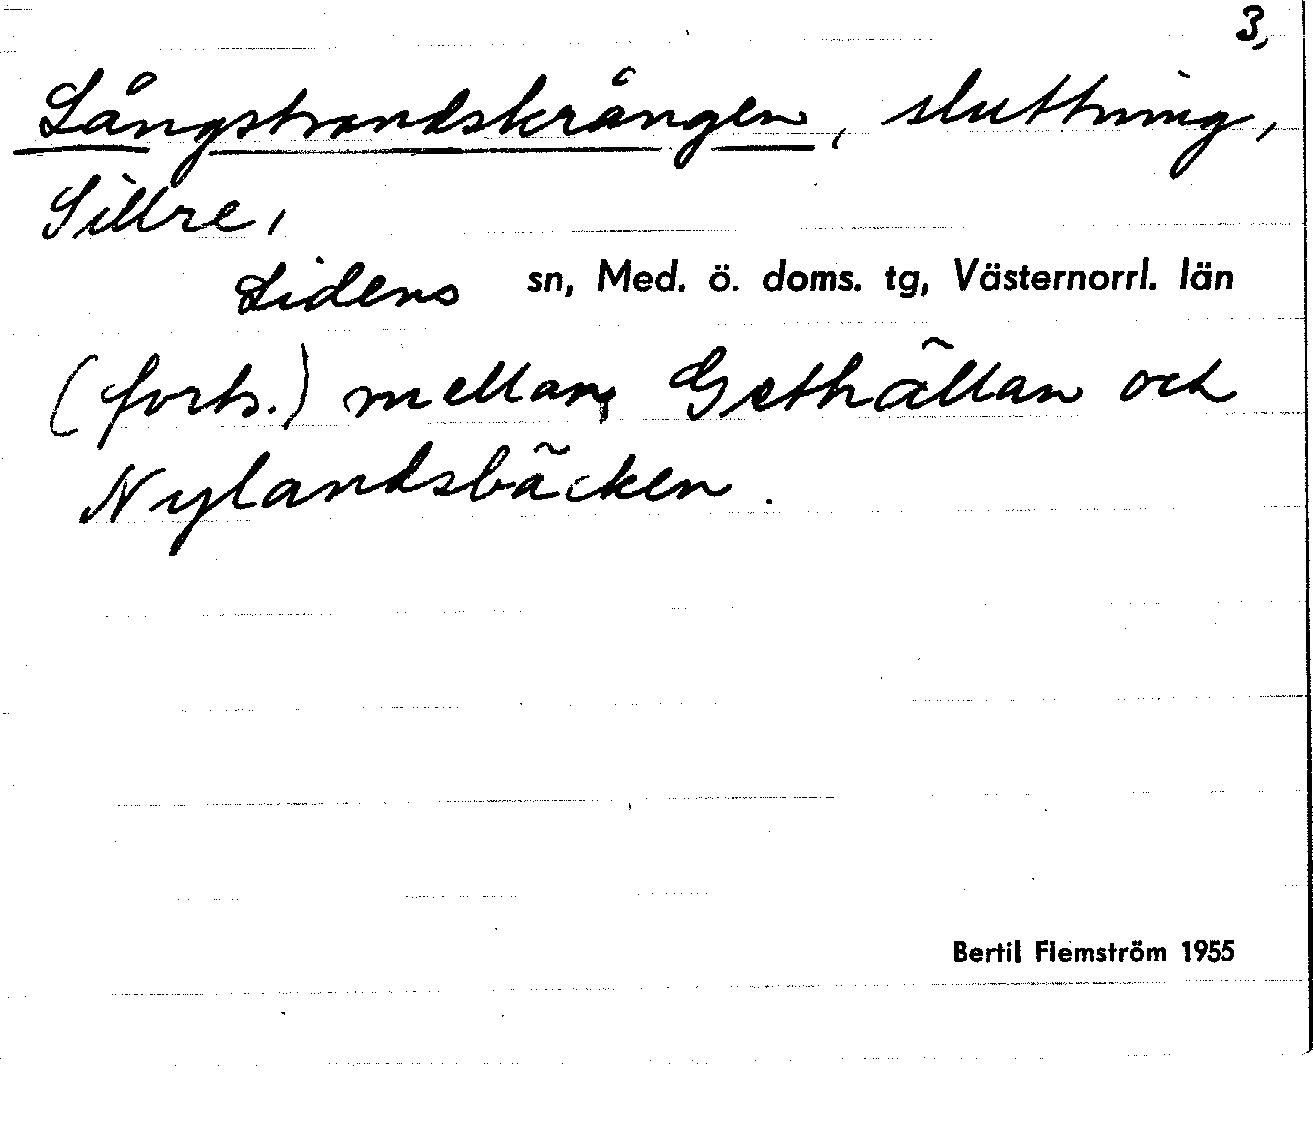 3,
Långstrandskrången, sluttning,
Sillre,
Lidens sn, Med. ö. doms. tg, Västernorrl. län
(forts.) mellan Gethällan och
Nylandsbäcken.
Bertil Flemström 1955